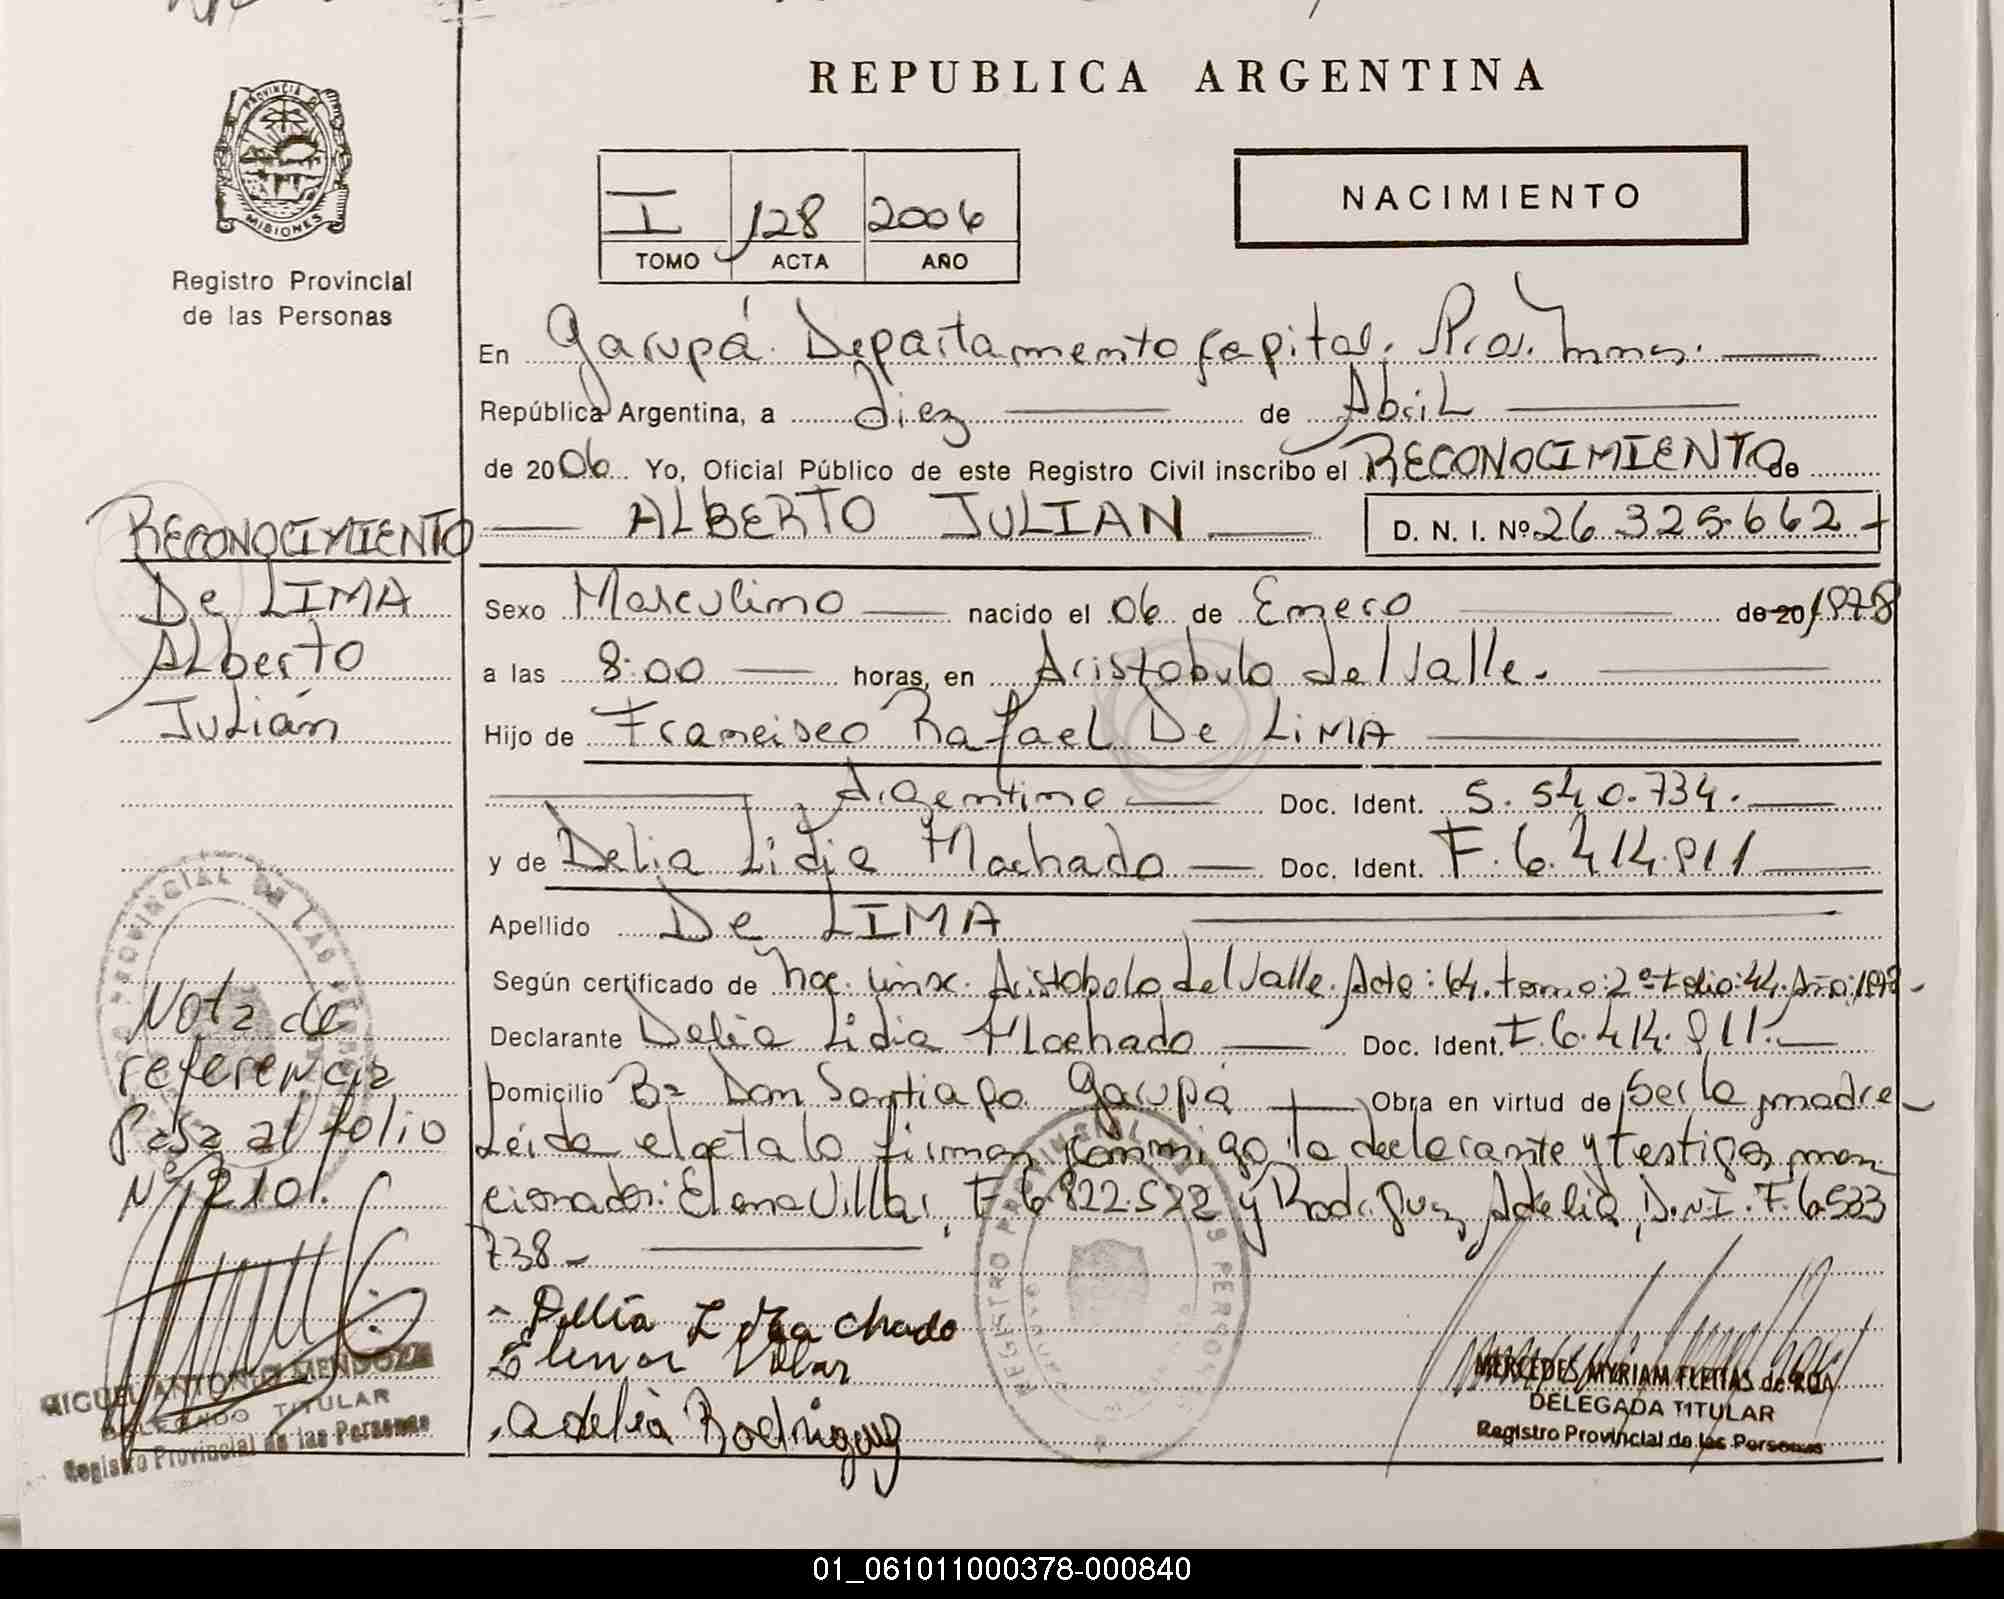 REPUBLICA ARGENTINA
PROVINCIA D
MISIONES
Registro Provincial
de las Personas
I 128 2006
TOMO ACTA AÑO
NACIMIENTO
En Garupá Departamento Capital, Prov. Mnes.
República Argentina, a diez de Abril
de 2006 Yo, Oficial Público de este Registro Civil inscribo el RECONOCIMIENTO de
ALBERTO JULIAN D. N. I. Nº 26.325.662
Sexo Masculino nacido el 06 de Enero de 20 1978
a las 8:00 horas, en Aristobulo del Valle.
Hijo de Francisco Rafael De LIMA
Argentino Doc. Ident. 5.540.734.
y de Delia Lidia Machado Doc. Ident. F. 6.414.911
Apellido De LIMA
Según certificado de Nac. insc. Aristobulo del Valle. Acta: 64. tomo: 2º folio: 44. Año: 1978
Declarante Delia Lidia Machado Doc. Ident. F. 6.414.911.
Domicilio Bº Don Santiago Garupá Obra en virtud de ser la madre
Leida el acta lo firman conmigo la declarante y testigos men
cionados: Elena Villar, F. 6.822.522 y Rodriguez Adelia, D.N.I. F. 6.533
738
Delia L Machado
Elena Villar
Adelia Rodriguez
MERCEDES MYRIAM FLEITAS de ROA
DELEGADA TITULAR
Registro Provincial de las Personas
RECONOCIMIENTO
De LIMA
Alberto
Julián
Nota de
referencia
Pasa al folio
Nº 210.
MIGUEL ANTONIO MENDOZA
DELEGADO TITULAR
Registro Provincial de las Personas
01_061011000378-000840